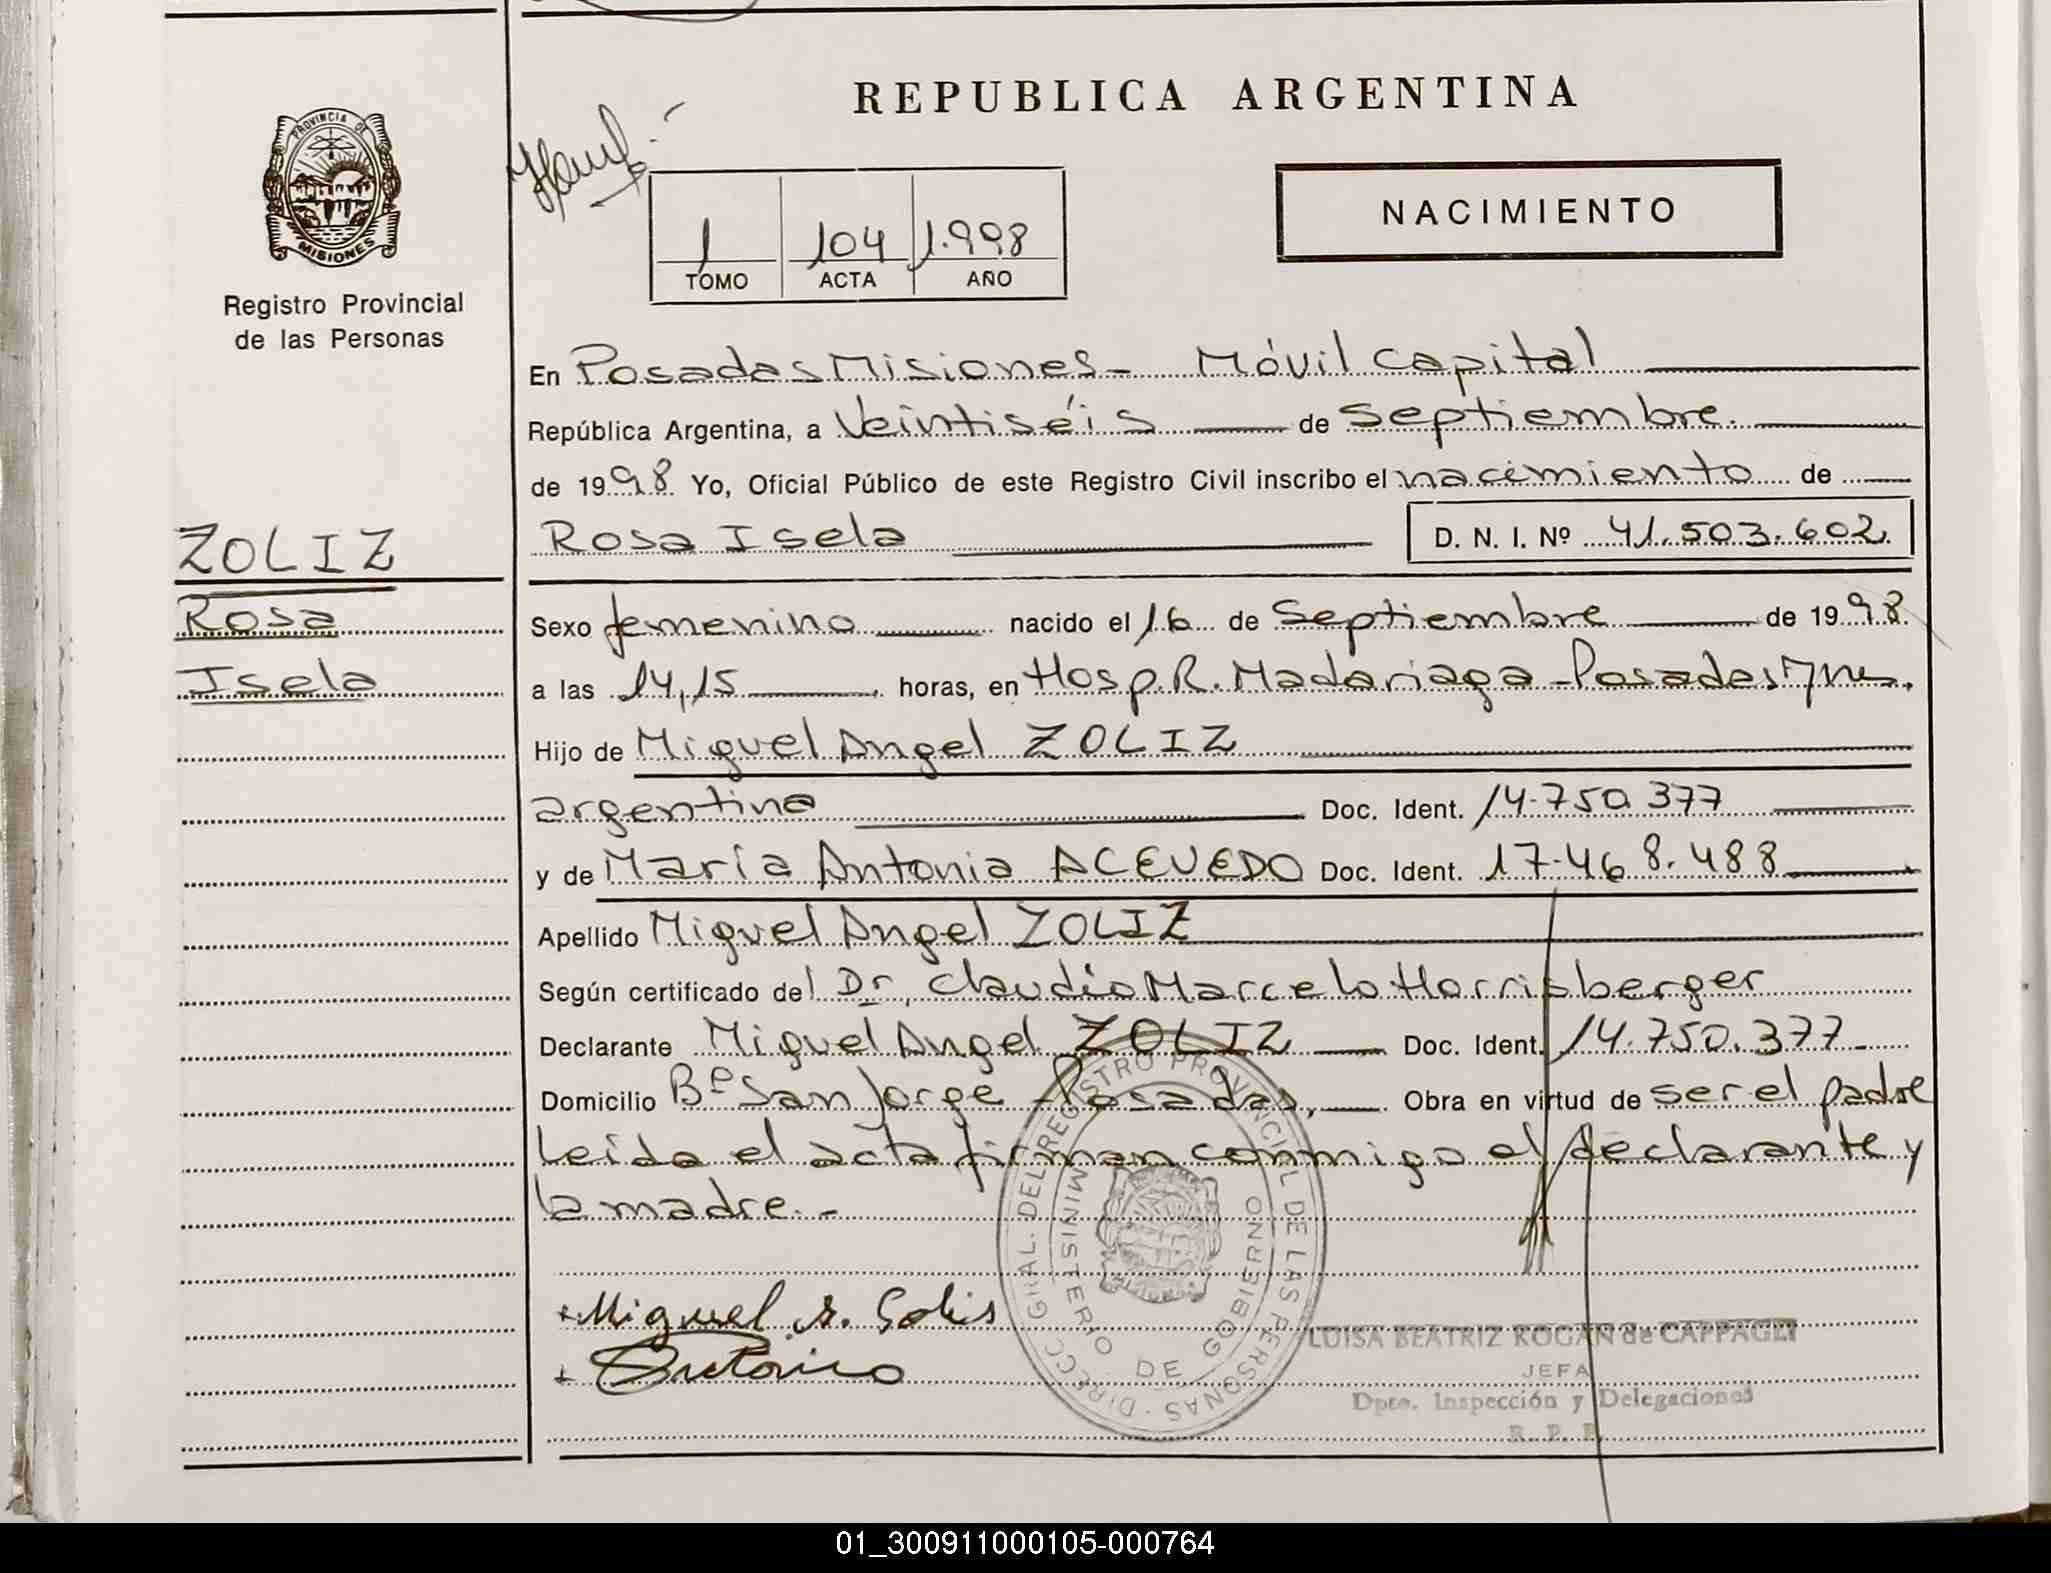 REPUBLICA ARGENTINA
PROVINCIA DE
MISIONES
Registro Provincial
de las Personas
NACIMIENTO
1 104 1.998
TOMO ACTA AÑO
En Posadas Misiones - Móvil Capital
República Argentina, a Veintiséis de Septiembre.
de 1998 Yo, Oficial Público de este Registro Civil inscribo el nacimiento de
ZOLIZ
Rosa Isela D. N. I. Nº 41.503.602.
Rosa
Sexo femenino nacido el 16 de Septiembre de 1998.
Isela
a las 14,15 horas, en Hosp. R. Madariaga - Posadas Mnes.
Hijo de Miguel Angel ZOLIZ
argentino Doc. Ident. 14.750.377
y de María Antonia ACEVEDO Doc. Ident. 17.468.488
Apellido Miguel Angel ZOLIZ
Según certificado del Dr. Claudio Marcelo Horrisberger
Declarante Miguel Angel ZOLIZ Doc. Ident. 14.750.377
Domicilio Bº San Jorge - Posadas, Obra en virtud de ser el padre
Leída el acta firman conmigo el declarante y
la madre.-
DIRECC. GRAL. DEL REGISTRO PROVINCIAL DE LAS PERSONAS
MINISTERIO DE GOBIERNO
+ Miguel A. Solis
+ Antonia
LUISA BEATRIZ ROGAN de CAPPAGLI
JEFA
Dpto. Inspección y Delegaciones
R. P. P.
01_300911000105-000764